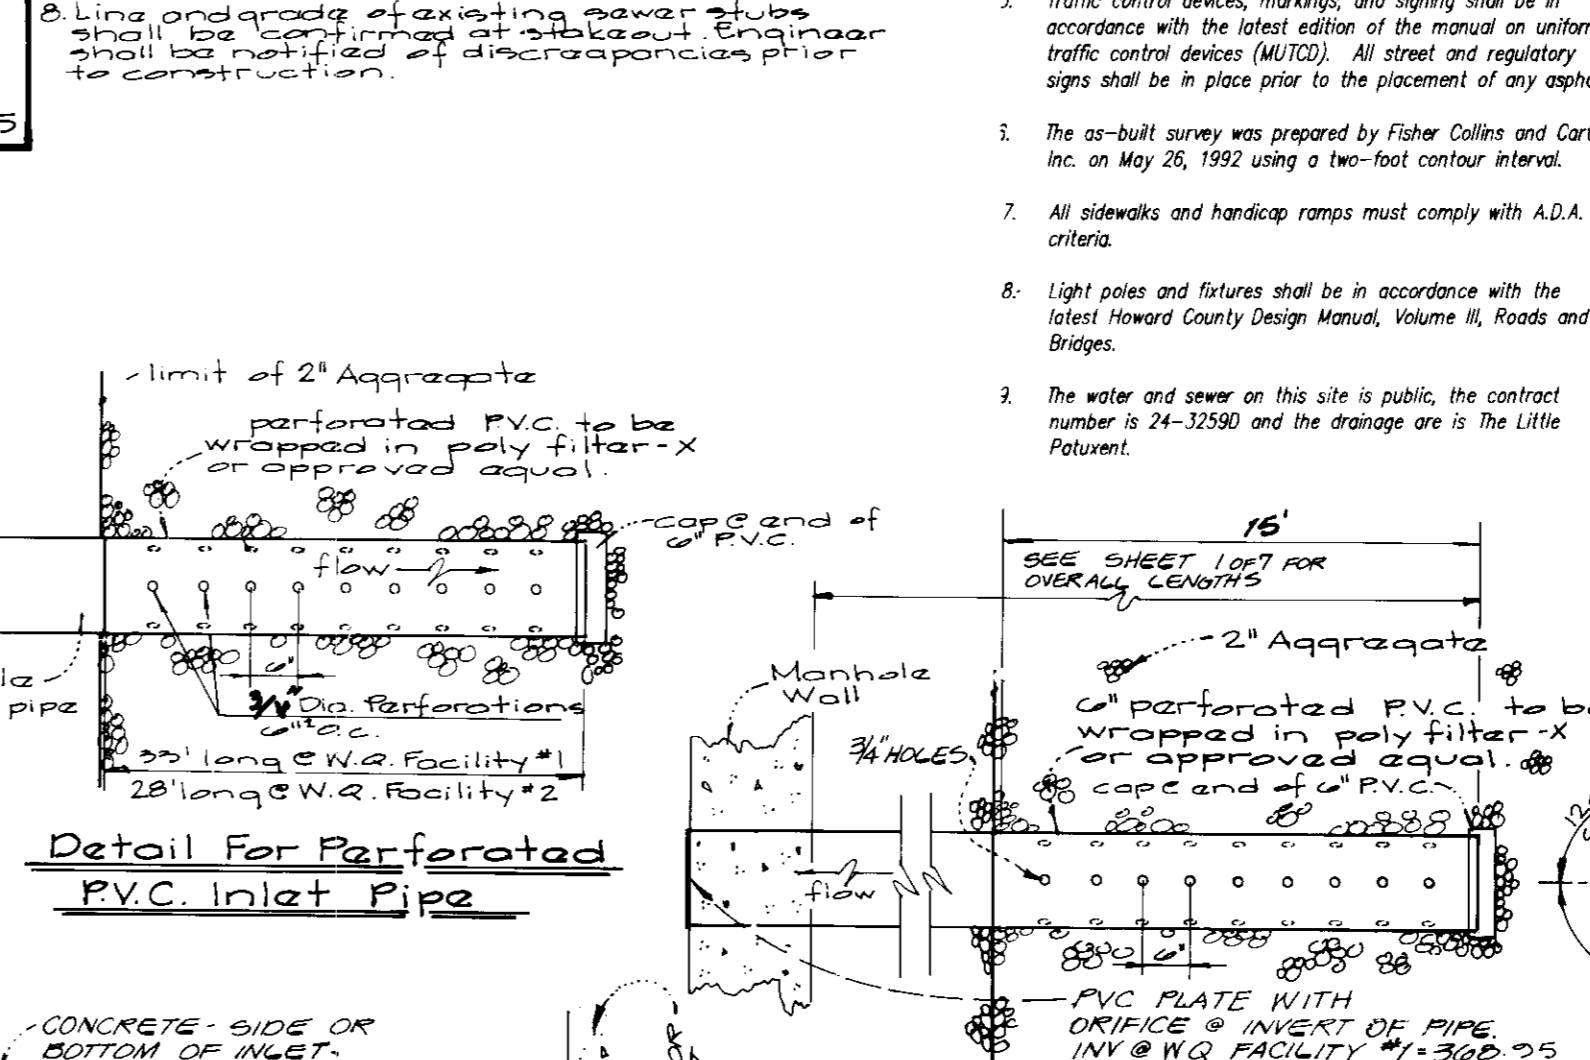 8. Line and grade of existing sewer stubs
shall be confirmed at stakeout. Engineer
shall be notified of discreapancies prior
to construction.
5
Traffic control devices, markings, and signing shall be in
accordance with the latest edition of the manual on
traffic control devices (MUTCD). All street and regulatory
signs shall be in place prior to the placement of any
The as-built survey was prepared by Fisher Collins and
Inc. on May 26, 1992 using a two-foot contour interval.
7. All sidewalks and handicap ramps must comply with A.D.A.
criteria.
8. Light poles and fixtures shall be in accordance with the
latest Howard County Design Manual, Volume III, Roads and
Bridges.
The water and sewer on this site is public, the contract
number is 24-3259D and the drainage are is The Little
Patuxent.
limit of 2" Aggregate
perforated P.V.C. to be
wrapped in poly filter-X
or approved equal.
cap @ end of
6" P.V.C.
flow
pipe
6"
3/4" Dia. Perforations
6" O.C.
33' long @ W.Q. Facility #1
28' long @ W.Q. Facility #2
Detail For Perforated
P.V.C. Inlet Pipe
15'
SEE SHEET 1 OF 7 FOR
OVERALL LENGTHS
2" Aggregate
Manhole
Wall
6" perforated P.V.C. to be
wrapped in poly filter-X
or approved equal.
3/4" HOLES
cap @ end of 6" P.V.C.
flow
6"
PVC PLATE WITH
ORIFICE @ INVERT OF PIPE.
INV @ WQ FACILITY #1 = 368.95
CONCRETE - SIDE OR
BOTTOM OF INLET